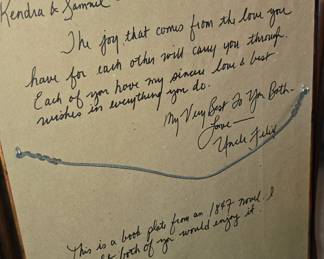 Kendra & Samuel
The joy that comes from the love you
have for each other will carry you through.
Each of you have my sincere love & best
wishes in everything you do.
My Very Best To You Both-
Love—
Uncle Felix
This is a book plate from an 1847 novel. I
both of you would enjoy it.